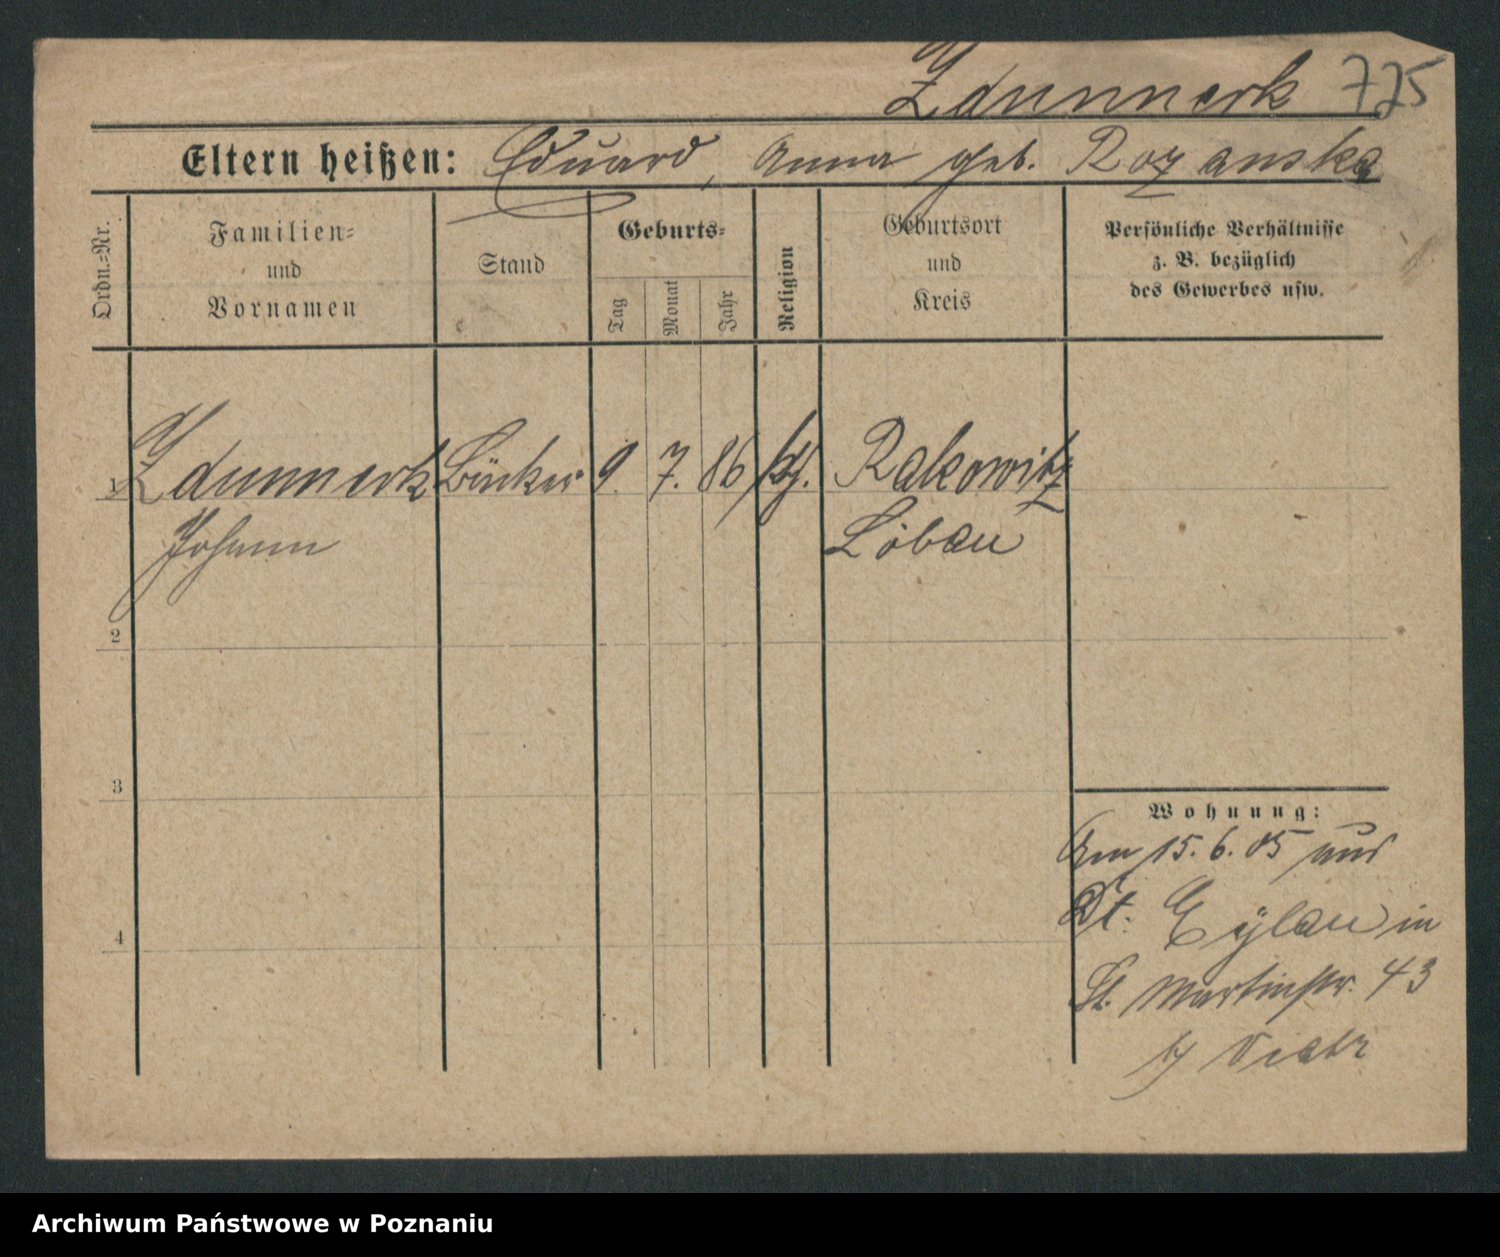 Zdunnerk 775
Eltern heißen: Eduard, Anna geb. Rozanska
Ordn.-Nr.
Familien-
und
Vornamen
Stand
Geburts-
Tag
Monat
Jahr
Religion
Geburtsort
und
Kreis
Persönliche Verhältnisse
z. B. bezüglich
des Gewerbes usw.
1 Zdunnerk Bäcker 9. 7. 86 kth. Rakowitz
Johann Löbau
2
3
4
Wohnung:
Am 15. 6. 05 aus
Dt. Eylau in
St. Martinstr. 43
b/
Archiwum Państwowe w Poznaniu